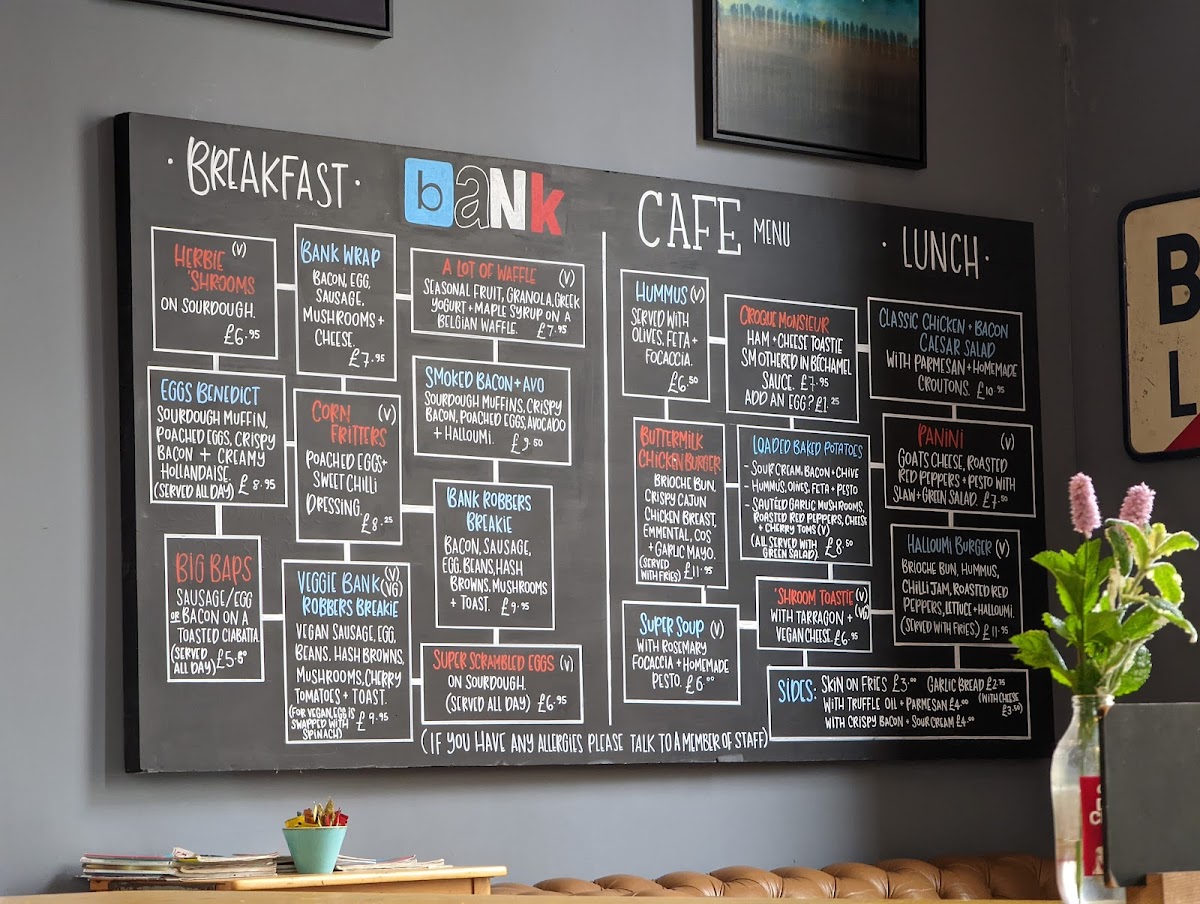 · BREAKFAST ·
bank
CAFE MENU
· LUNCH ·
HERBIE (V)
'SHROOMS
ON SOURDOUGH.
£6.95
BANK WRAP
BACON, EGG,
SAUSAGE,
MUSHROOMS +
CHEESE.
£7.95
A LOT OF WAFFLE (V)
SEASONAL FRUIT, GRANOLA, GREEK
YOGURT + MAPLE SYRUP ON A
BELGIAN WAFFLE. £7.95
EGGS BENEDICT
SOURDOUGH MUFFIN,
POACHED EGGS, CRISPY
BACON + CREAMY
HOLLANDAISE.
(SERVED ALL DAY) £8.95
CORN (V)
FRITTERS
POACHED EGGS +
SWEET CHILLI
DRESSING.
£8.25
SMOKED BACON + AVO
SOURDOUGH MUFFINS, CRISPY
BACON, POACHED EGGS, AVOCADO
+ HALLOUMI. £9.50
BANK ROBBERS
BREAKIE
BACON, SAUSAGE,
EGG, BEANS, HASH
BROWNS, MUSHROOMS
+ TOAST. £9.95
BIG BAPS
SAUSAGE/EGG
OR BACON ON A
TOASTED CIABATTA.
(SERVED
ALL DAY) £5.60
VEGGIE BANK (V)
ROBBERS BREAKIE (VG)
VEGAN SAUSAGE, EGG,
BEANS, HASH BROWNS,
MUSHROOMS, CHERRY
TOMATOES + TOAST.
(FOR VEGAN, EGG IS
SWAPPED WITH £9.95
SPINACH)
SUPER SCRAMBLED EGGS (V)
ON SOURDOUGH.
(SERVED ALL DAY) £6.95
HUMMUS (V)
SERVED WITH
OLIVES, FETA +
FOCACCIA.
£6.50
CROQUE MONSIEUR
HAM + CHEESE TOASTIE
SMOTHERED IN BÉCHAMEL
SAUCE. £7.95
ADD AN EGG? £1.25
CLASSIC CHICKEN + BACON
CAESAR SALAD
WITH PARMESAN + HOMEMADE
CROUTONS. £10.95
BUTTERMILK
CHICKEN BURGER
BRIOCHE BUN,
CRISPY CAJUN
CHICKEN BREAST,
EMMENTAL, COS
+ GARLIC MAYO.
(SERVED
WITH FRIES) £11.95
LOADED BAKED POTATOES
- SOUR CREAM, BACON + CHIVE
- HUMMUS, OLIVES, FETA + PESTO
- SAUTÉED GARLIC MUSHROOMS,
ROASTED RED PEPPERS, CHEESE
+ CHERRY TOMS (V)
(ALL SERVED WITH £8.50
GREEN SALAD)
PANINI (V)
GOATS CHEESE, ROASTED
RED PEPPERS + PESTO WITH
SLAW + GREEN SALAD. £7.50
HALLOUMI BURGER (V)
BRIOCHE BUN, HUMMUS,
CHILLI JAM, ROASTED RED
PEPPERS, LETTUCE + HALLOUMI.
(SERVED WITH FRIES) £11.95
SUPER SOUP (V)
WITH ROSEMARY
FOCACCIA + HOMEMADE
PESTO. £6.00
'SHROOM TOASTIE (V)
WITH TARRAGON + (VG)
VEGAN CHEESE. £6.95
SIDES: SKIN ON FRIES £3.00 GARLIC BREAD £2.75
WITH TRUFFLE OIL + PARMESAN £4.00 (WITH CHEESE
£3.50)
WITH CRISPY BACON + SOUR CREAM £4.00
(IF YOU HAVE ANY ALLERGIES PLEASE TALK TO A MEMBER OF STAFF)
B
L